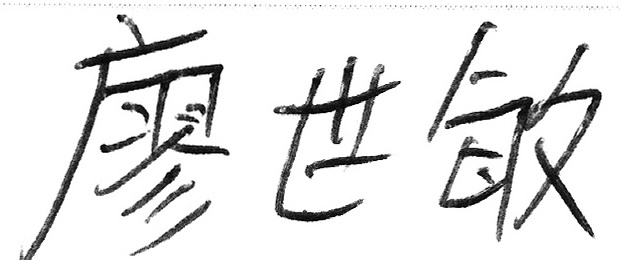 廖世敏